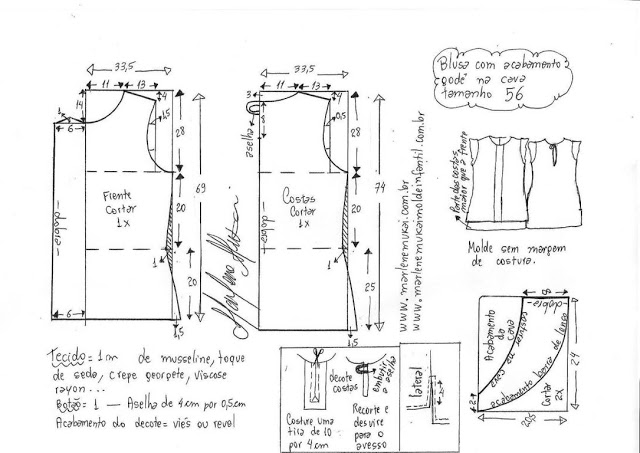 Blusa com acabamento
godê na cava
tamanho 56
33,5
11 13
14
4
1
6
1,5
28
69
Frente
Cortar
1x
20
-dobra-
1
20
6
1,5
33,5
11 13
3
4
8
0,5
aselha
28
74
Costas
Cortar
1x
-dobra-
20
1
25
1,5
www.marlenemukai.com.br
www.marlenemukaimoldeinfantil.com.br
Parte das costas
maior que a frente
Molde sem margem
de costura.
8
-dobra-
Acabamento
do
cava
costurar na cava
acabamento bainha de lenso
Cortar
2x
24
2
20,5
Tecido = 1m de musseline, toque
de seda, crepe georgete, viscose
rayon...
Botão = 1 — Aselha de 4cm por 0,5cm
Acabamento do decote = viés ou revel
decote
costas
embutir
a aselha
Costure uma
tira de 10
por 4cm
Recorte e
desvire
para o
avesso
lateral